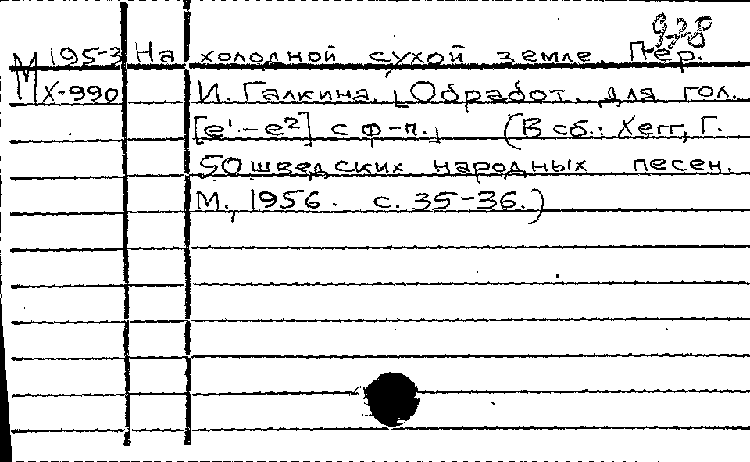 928
М 195-3 На холодной сухой земле. Пер.
Х-990 И. Галкина. [Обработ. для гол.
[e¹-e²] с ф-п.] (В сб.: Хегг, Г.
50 шведских народных песен.
М., 1956. с. 35-36.)